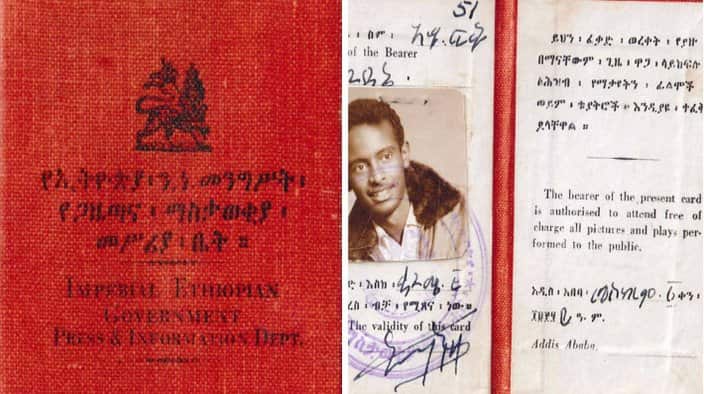 የኢትዮጵያ፡ን፡ነ፡መንግሥት፡
የጋዜጣና፡ማስታወቂያ፡
መሥሪያ፡ቤት።
IMPERIAL ETHIOPIAN
GOVERNMENT
PRESS & INFORMATION DEPT.
51
ስም፡
of the Bearer
እስከ፡
ብቻ፡የሚጸና፡ነው።
The validity of this card
ይህን፡ፈቃድ፡ወረቀት፡የያዙ
በማናቸውም፡ጊዜ፡ዋጋ፡ሳይከፍሉ
ለሕዝብ፡የሚታዩትን፡ፊልሞች
ወይም፡ቴያትሮች፡እንዲያዩ፡ተፈቅ
ዶላቸዋል።
The bearer of the present card
is authorised to attend free of
charge all pictures and plays per-
formed to the public.
አዲስ፡አበባ፡ ቀን፡
ዓ.ም.
Addis Ababa,